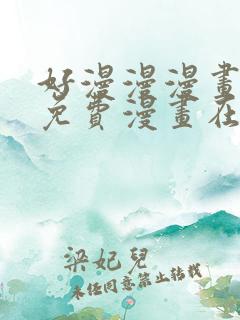 好漫漫漫畫
免費漫畫在
梁妃兒
未经同意禁止转载